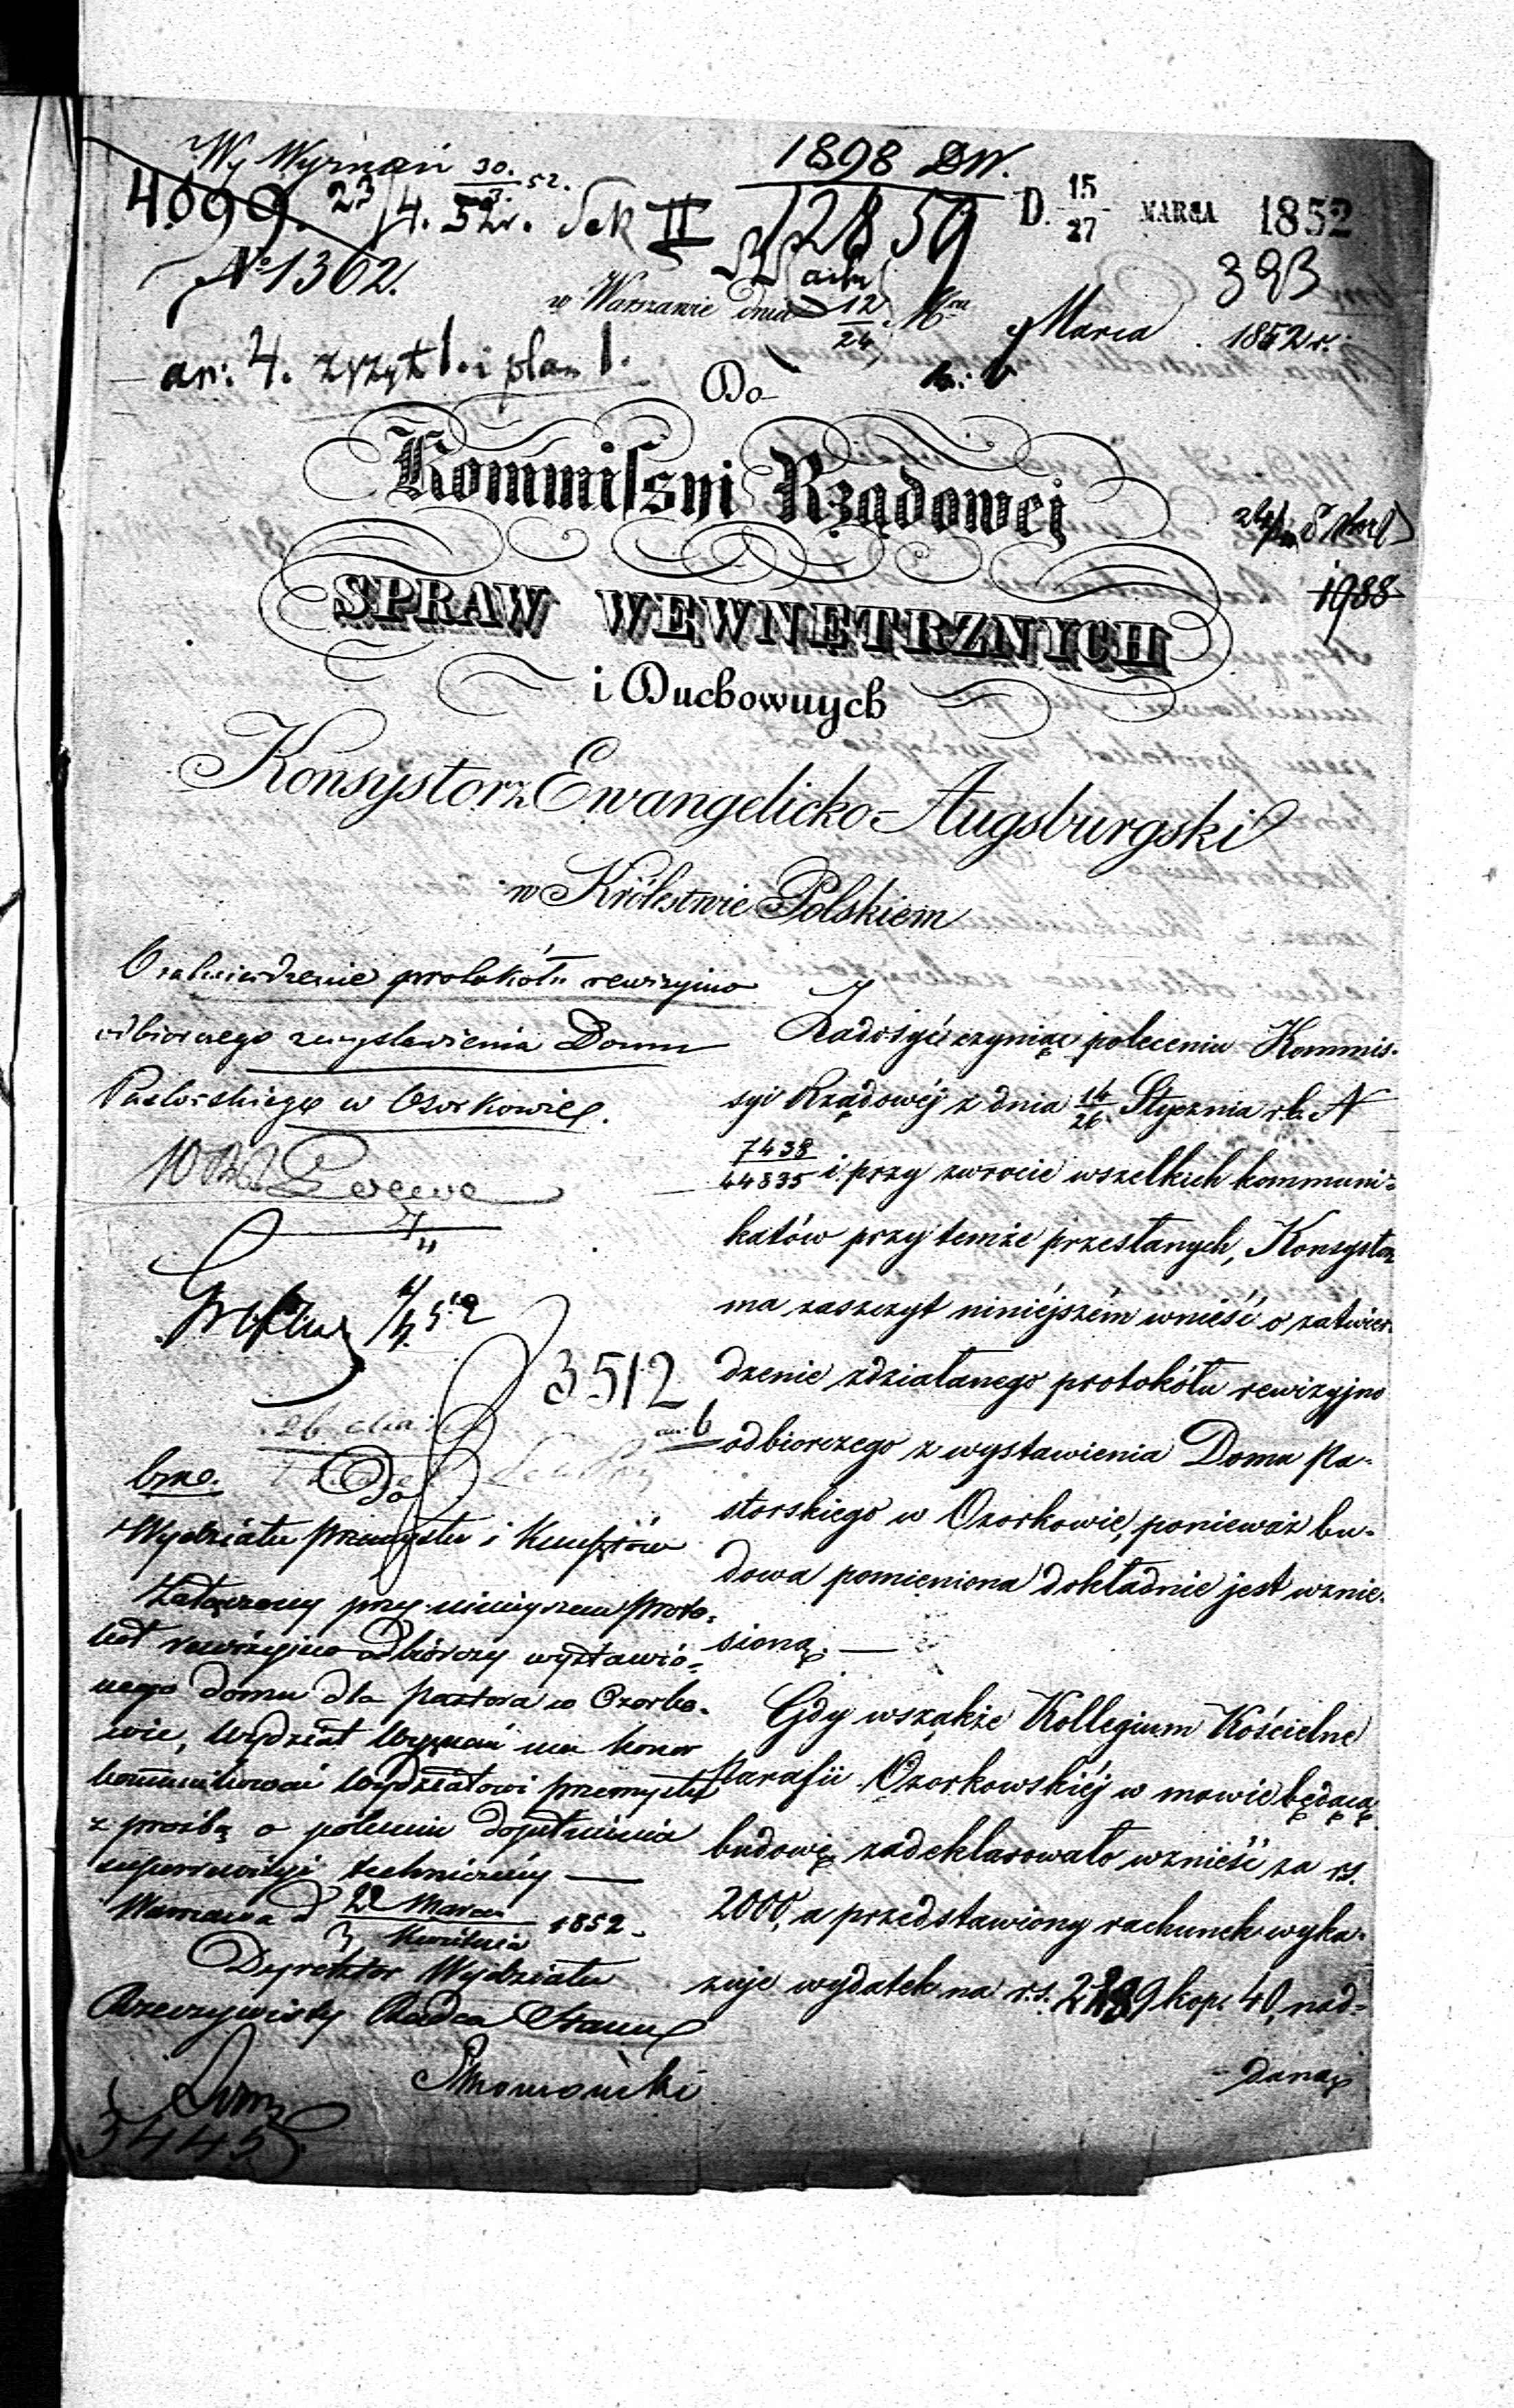 Wy Wyznań 30./3. 52.
1898 DW.
4099. 23/4. 52r. Sek II
12859
D. 15/27 MARCA 1852
No 1362.
393
w Warszawie dnia 12/24 Marca 1852 r.
an: 4. zeszyt 1. i plan 1.
Do
Kommissyi Rządowej
1988
SPRAW WEWNĘTRZNYCH
i Duchownych
Konsystorz Ewangelicko-Augsburgski
w Królestwie Polskiem
O zatwierdzenie protokółu rewizyjno
odbiorczego wystawienia Domu
Pastorskiego w Ozorkowie.
Zadosyć czyniąc poleceniu Kommis-
syi Rządowéj z dnia 14/26 Stycznia r.b. N
7438/44835 i przy zwrocie wszelkich kommuni-
katów przy temże przesłanych, Konsystorz
ma zaszczyt niniejszém wnieść o zatwier-
dzenie zdziałanego protokółu rewizyjno
odbiorczego z wystawienia Domu Pa-
storskiego w Ozorkowie, ponieważ bu-
dowa pomieniona dokładnie jest wznie-
sioną. —
Gdy wszakże Kollegium Kościelne
Parafii Ozorkowskiéj w mowie będącą
budowę zadeklarowało wznieść za rs.
2000, a przedstawiony rachunek wyka-
zuje wydatek na r.s. 2289 kop. 40, nad-
daną
3512
bme.
Do
Wydziału Przemysłu i Kunsztów
Załączony przy niniejszem proto-
kół rewizyjno odbiorczy wystawio-
nego domu dla pastora w Ozorko-
wie, Wydział Wyznań ma honor
kommunikować Wydziałowi Przemysłu
z prośbą o polecenie dopełnienia
superrewizyi technicznéj —
Warszawa d 22 Marca/3 Kwietnia 1852.
Dyrektor Wydziału
Rzeczywisty Radca Stanu
3445